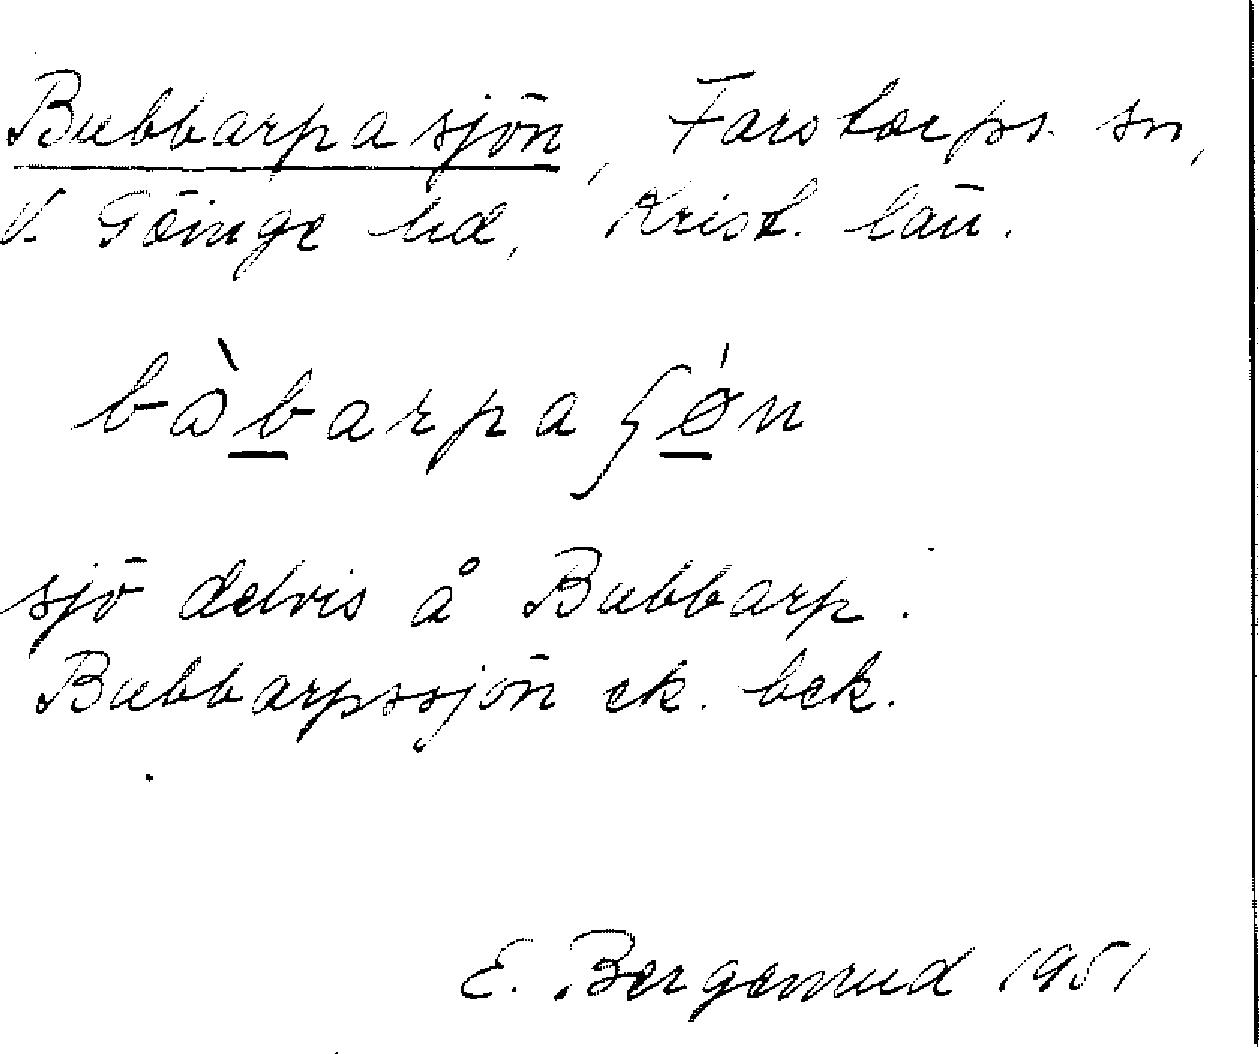 Bubbarpasjön, Farstorps sn,
V. Göinge hd, Krist. län.
bὰbarpaʃǿn
sjö delvis å Bubbarp.
Bubbarpssjön ek. bek.
E. Bergemrud 1951